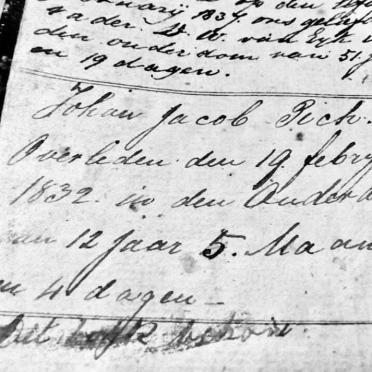 op den
1837, ons geliefde
vader
den ouderdom van 51 J
en 19 dagen.
Johan Jacob Pich
Overleden den 19 febry
1832 in den Ouderd
van 12 Jaar 5. Maan
en 4 dagen